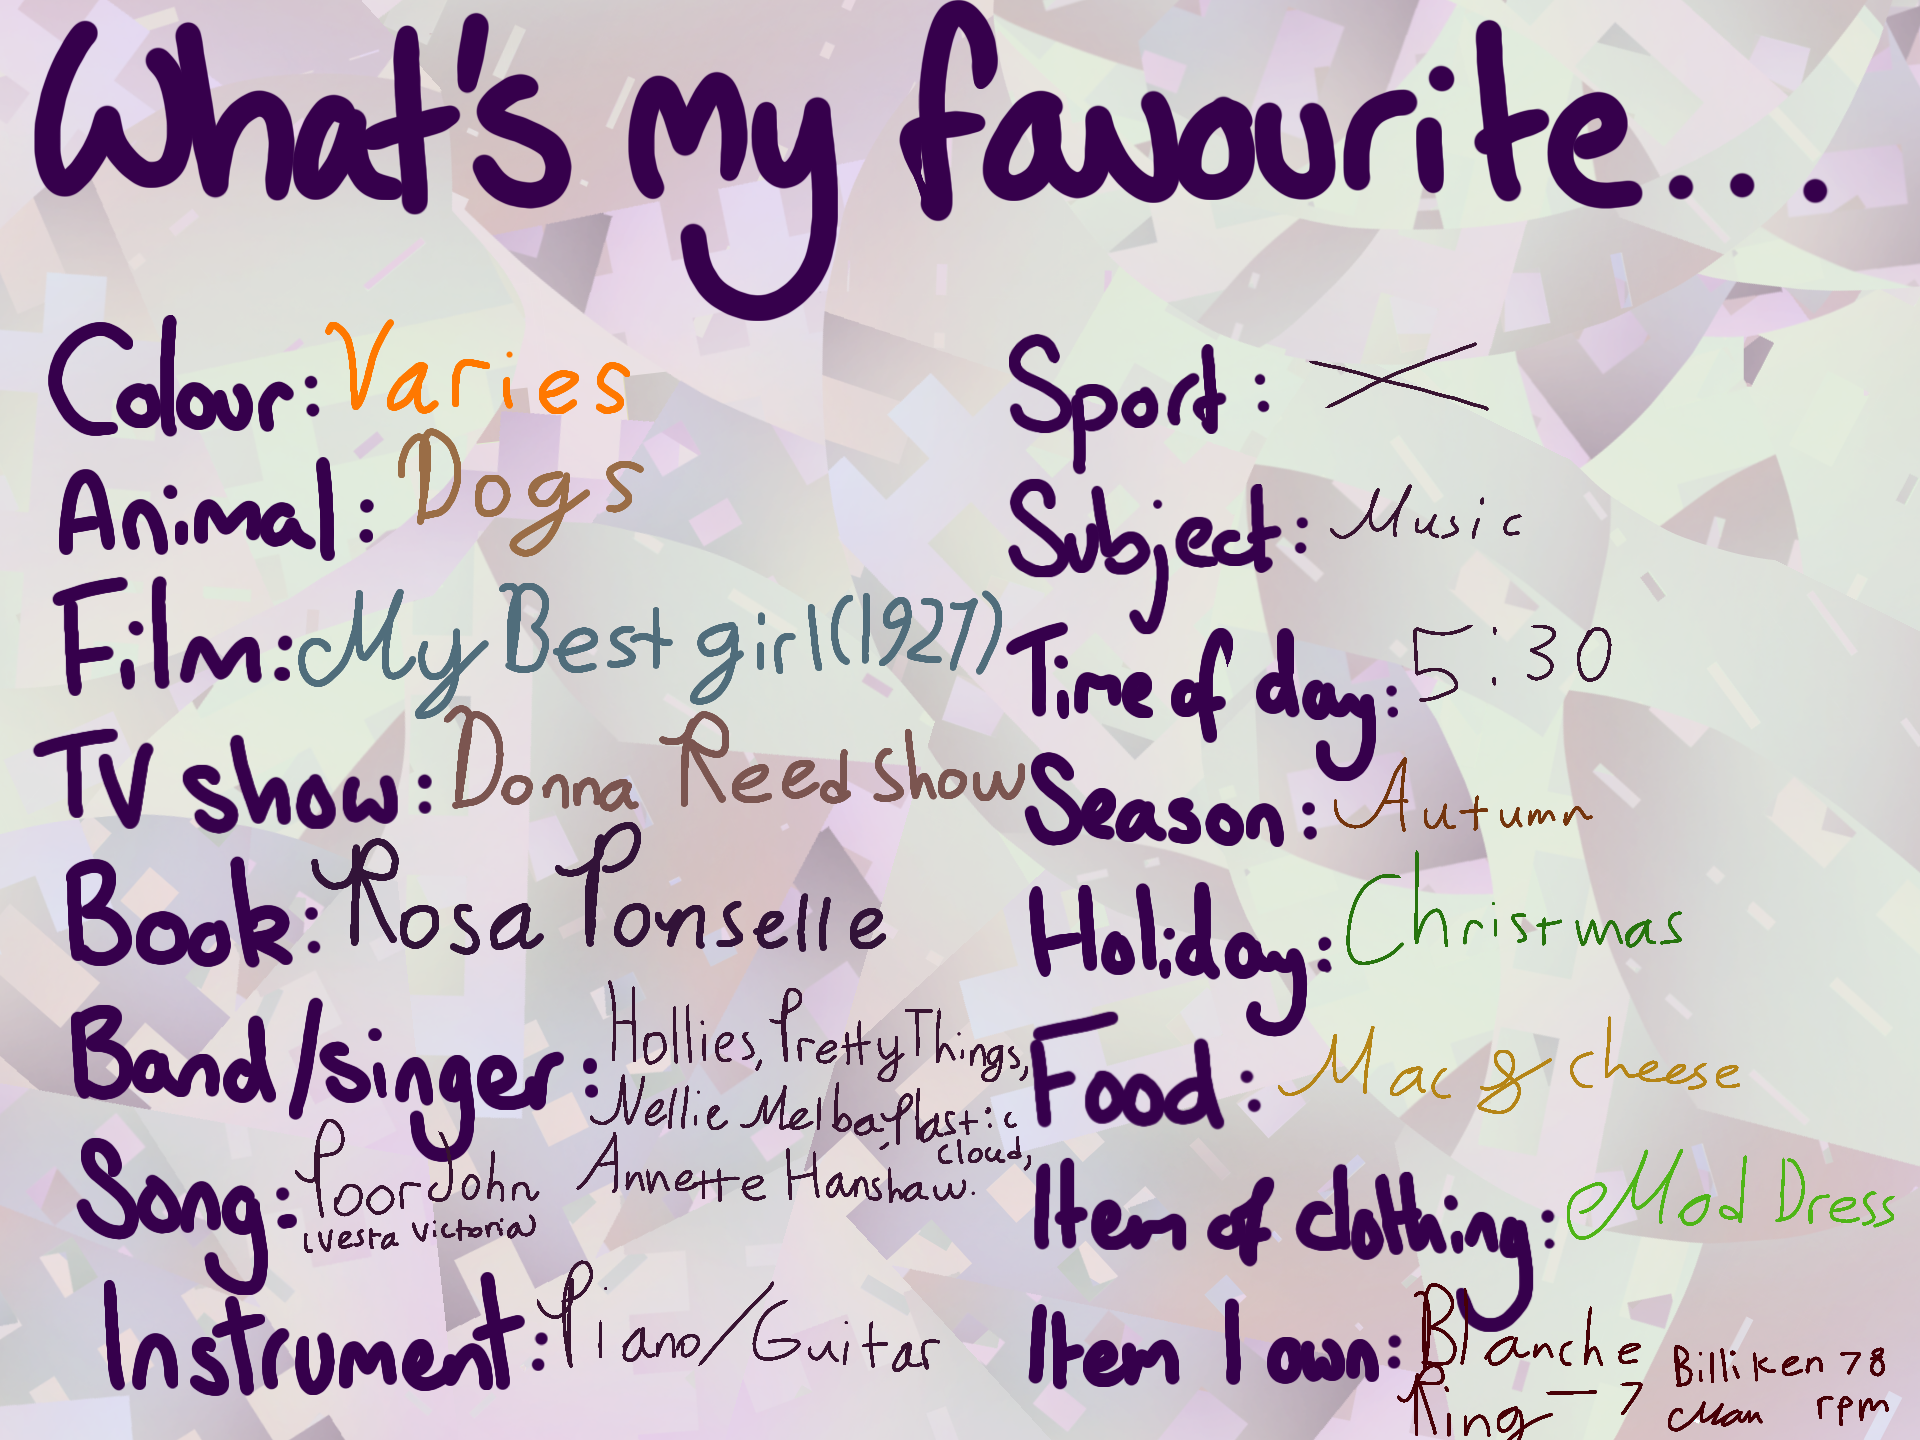 What's my favourite...
Colour: Varies
Animal: Dogs
Film: My Best girl (1927)
TV show: Donna Reed Show
Book: Rosa Ponselle
Band/singer: Hollies, Pretty Things,
Nellie Melba, Plastic
cloud,
Annette Hanshaw.
Song: Poor John
(Vesta Victoria)
Instrument: Piano/Guitar
Sport: X
Subject: Music
Time of day: 5:30
Season: Autumn
Holiday: Christmas
Food: Mac & cheese
Item of clothing: Mod Dress
Item I own: Blanche
Ring — 7
Billiken 78
Man rpm